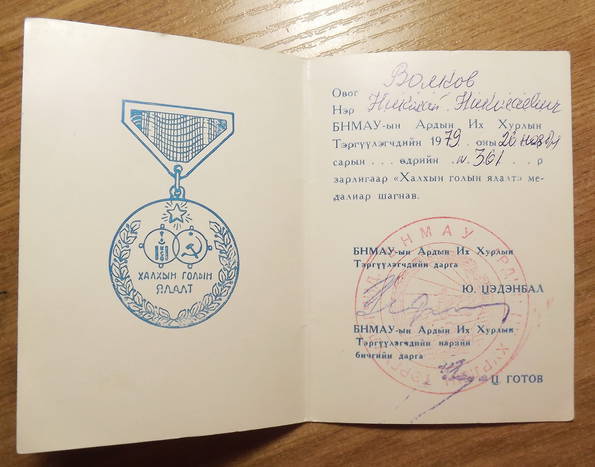 ХАЛХЫН ГОЛЫН
ЯЛАЛТ
Овог Волков
Нэр Николай Николаевич
БНМАУ-ын Ардын Их Хурлын
Тэргүүлэгчдийн 1979 оны 20
сарын . . . өдрийн № 361 . . р
зарлигаар «Халхын голын ялалт» ме-
далиар шагнав.
БНМАУ-ын Ардын Их Хурлын
Тэргүүлэгчдийн дарга
Ю. ЦЭДЭНБАЛ
БНМАУ-ын Ардын Их Хурлын
Тэргүүлэгчдийн нарийн
бичгийн дарга
Ц. ГОТОВ
БНМАУ